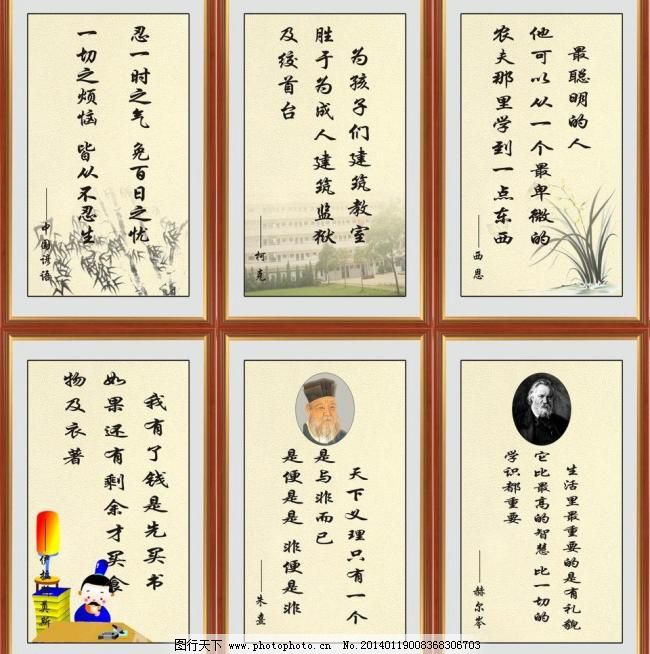 忍一时之气 免百日之忧
一切之烦恼 皆从不忍生
——中国谚语
为孩子们建筑教室
胜于为成人建筑监狱
及绞首台
——柯克
最聪明的人
他可以从一个最卑微的
农夫那里学到一点东西
——西恩
我有了钱是先买书
如果还有剩余才买食
物及衣著
——伊拉斯莫斯
天下义理只有一个
是与非而已
是便是是 非便是非
——朱熹
生活里最重要的是有礼貌
它比最高的智慧 比一切的
学识都重要
——赫尔岑
图行天下 www.photophoto.cn No.20140119008368306703